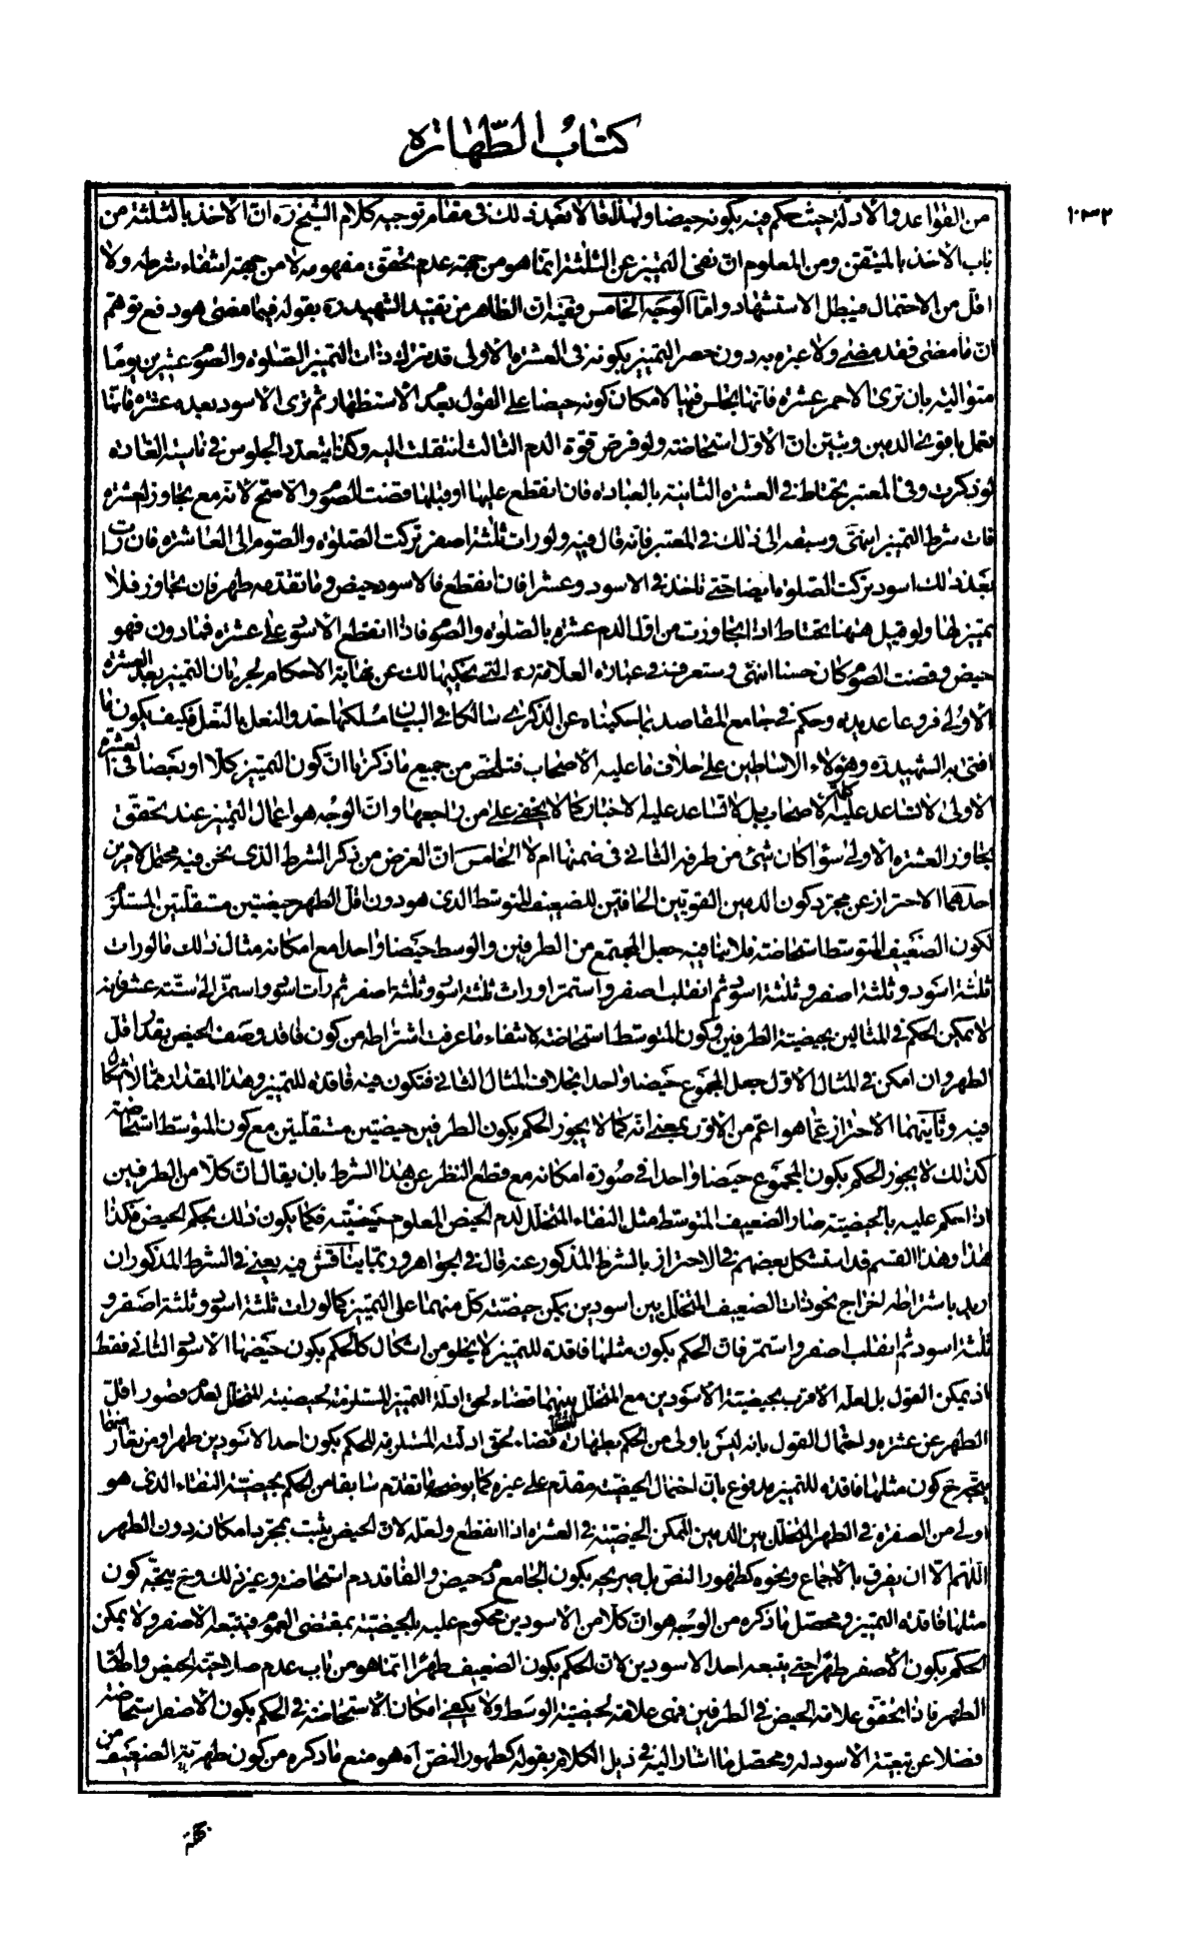 كتاب الطهارة
١٠٣٢
من القواعد والأدلة حيث حكم فيه بكونه حيضا ولهذا قال بعد ذلك في مقام توجيه كلام الشيخ ره ان الأخذ بالثلثة من
باب الأخذ بالمتيقن ومن المعلوم ان نفى التميز عن الثلثة انما هو من جهة عدم تحقق مفهومه لا من جهة انتفاء شرطه ولا
اقل من الاحتمال فيبطل الاستشهاد واما الوجه الخامس ففيه ان الظاهر من تقييد الشهيد ره بقوله فيما مضى هو دفع توهم
ان ما مضى فقد مضى ولا عبرة به دون حصر التميز بكونه في العشرة الاولى قد تترك ذات التميز الصلوة والصوم عشرين يوما
متوالية بان ترى الاحمر عشرة فانها تجلس فيها لامكان كونه حيضا على القول بعدم الاستظهار ثم ترى الأسود بعده عشرة فانها
تعمل باقوى الدمين ويتبين ان الأول استحاضة ولو فرض قوة الدم الثالث انتقلت اليه وكذا يتعدد الجلوس في ناسية العادة
لو ذكرت وفي المعتبر تحتاط في العشرة الثانية بالعبادة فان انقطع عليها او قبلها قضت الصوم والاصح لا لانه مع تجاوز العشرة
فات شرط التميز انتهى وسبقه الى ذلك في المعتبر فانه قال فيه ولو رات ثلثة اصفر تركت الصلوة والصوم الى العاشرة فان رات
بعد ذلك اسود تركت الصلوة ايضا حتى تاخذ في الاسود وعشرا فان انقطع فالاسود حيض وما تقدمه طهر فان تجاوز فلا
تميز لها ولو قيل هنهنا تحتاط اذا تجاوزت من اول الدم عشرة بالصلوة والصوم فاذا انقطع الأسود على عشرة فما دون فهو
حيض وقضت الصوم كان حسنا انتهى وستعرف في عبارة العلامة ره التي نحكيها لك عن نهاية الاحكام لجريان التميز بعد العشرة
الأولى فروعا عديدة وحكم في جامع المقاصد بما حكيناه عن الذكرى سالكا في البيان مسلكها حذو النعل بالنعل فكيف يكون ما
افتى به الشهيد ره وهؤلاء الاساطين على خلاف ما عليه الأصحاب فتلخص من جميع ما ذكرنا ان كون التميز كلا او بعضا في العشرة
الأولى لا تساعد عليه كلمة الأصحاب بل لا تساعد عليه الاخبار كما لا يخفى على من راجعها وان الوجه هو اعمال التميز عند تحقق
تجاوز العشرة الاولى سواء كان شئ من طرفه الثاني في ضمنها ام لا الخامس ان الغرض من ذكر الشرط الذي نحن فيه محتمل لامرين
احدهما الاحتراز عن مجرد كون الدمين القويين الحافتين للضعيف المتوسط الذي هو دون اقل الطهر حيضتين مستقلتين المستلزم
لكون الضعيف المتوسط استحاضة فلا ينافيه جعل المجتمع من الطرفين والوسط حيضا واحدا مع امكانه مثال ذلك ما لو رات
ثلثة اسود وثلثة اصفر وثلثة اسود ثم انقلب اصفر واستمر او رات ثلثة اسود وثلثة اصفر ثم رات اسود واستمر الى ستة عشر فانه
لا يمكن الحكم في المثالين بحيضية الطرفين وكون المتوسط استحاضة لانتفاء ما عرفت اشتراطه من كون فاقد وصف الحيض بقدر اقل
الطهر وان امكن في المثال الأول جعل المجموع حيضا واحدا بخلاف المثال الثاني فتكون فيه فاقدة للتميز وهذا المقدار مما لا اشكال
فيه وثانيهما الاحتراز عما هو اعم من الأول بمعنى انه كما لا يجوز الحكم بكون الطرفين حيضتين مستقلتين مع كون المتوسط استحاضة
كذلك لا يجوز الحكم بكون المجموع حيضا واحدا في صورة امكانه مع قطع النظر عن هذا الشرط بان يقال ان كلا من الطرفين
اذا حكم عليه بالحيضية صار الضعيف المتوسط مثل النقاء المتخلل لدم الحيض المعلوم حيضيته فكما يكون ذلك بحكم الحيض فكذا
هذا وهذا القسم قد استشكل بعضهم في الاحتراز بالشرط المذكور عنه قال في الجواهر وربما يناقش فيه يعني في الشرط المذكور ان
اريد باشتراطه اخراج نحو ذات الضعيف المتخلل بين اسودين يمكن حيضية كل منهما على التميز كما لو رات ثلثة اسود وثلثة اصفر و
ثلثة اسود ثم انقلب اصفر واستمر فان الحكم بكون مثلها فاقدة للتميز لا يخلو من اشكال كالحكم بكون حيضها الاسود الثاني فقط
اذ يمكن القول بل لعله الأقرب بحيضية الأسودين مع المتخلل بينهما قضاء لحق ادلة التميز المستلزمة لحيضية المتخلل لعدم قصور اقل
الطهر عن عشرة واحتمال القول بانه ليس باولى من الحكم بطهارة المتخلل قضاء لحق ادلته المستلزمة للحكم بكون احد الأسودين طهرا ومن تعارضهما
يتجه ح كون مثلها فاقدة للتميز مدفوع بان احتمال الحيضية مقدم على غيره كما يوضحه ما تقدم سابقا من الحكم بحيضية النقاء الذي هو
اولى من الصفرة في الطهر المتخلل بين الدمين الممكن الحيضية في العشرة اذا انقطع ولعله لان الحيض يثبت بمجرد امكانه دون الطهر
اللهم الا ان يفرق بالاجماع ونحوه كظهور النص بل صريحه بكون الجامع دم حيض والفاقد دم استحاضة وغير ذلك وح يتجه كون
مثلها فاقدة التميز ومحصل ما ذكره من الوجه هو ان كلا من الأسودين محكوم عليه بالحيضية بمقتضى العموم فيتبعه الأصفر ولا يمكن
الحكم بكون الأصفر طهرا حتى يتبعه احد الاسودين لان الحكم بكون الضعيف طهرا انما هو من باب عدم صلاحية الحيض واطلاق
الطهر فاذا تحقق علامة الحيض في الطرفين فهي علامة لحيضية الوسط ولا يكفي امكان الاستحاضة في الحكم بكون الأصفر استحاضة
فضلا عن تبعية الأسود له ومحصل ما اشار اليه في ذيل الكلام بقوله كظهور النص آه هو منع ما ذكره من كون طهرية الضعيف من